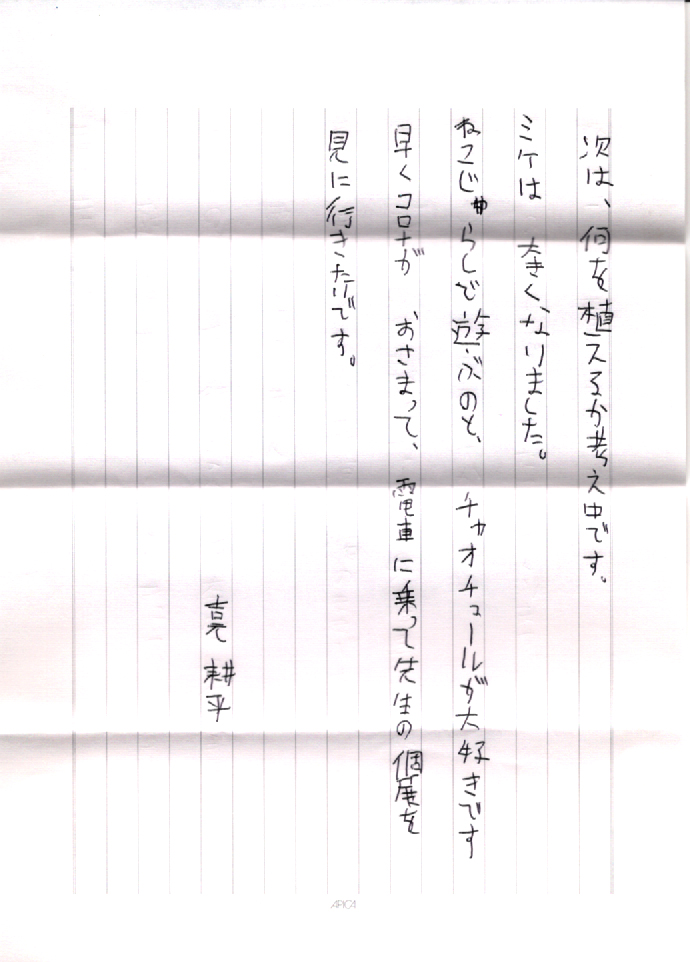 次は、何を植えるか考え中です。
ミケは 大きく、なりました。
ねこじゃらしで遊ぶのと、 チャオチュールが大好きです
早くコロナが おさまって、 電車に乗って先生の個展を
見に行きたいです。
亮 耕平
APICA